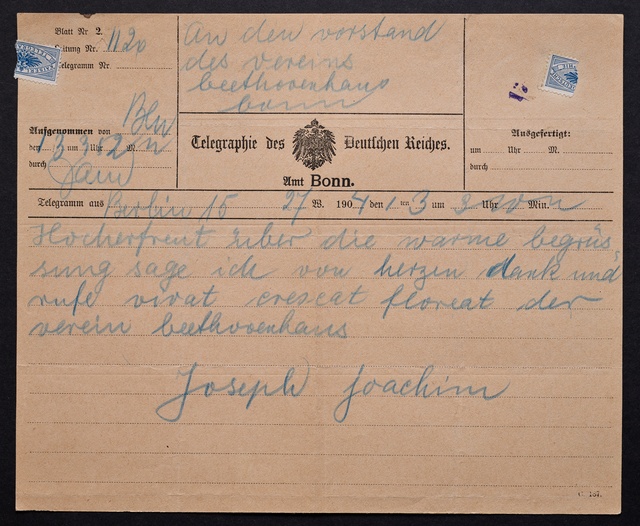 Blatt Nr. 2.
Leitung Nr. 1120
Telegramm Nr.
An den vorstand
des vereins
beethovenhaus
bonn
Aufgenommen von Bln
den 1 3 um 3 Uhr 52 M. n
durch
Telegraphie des Deutschen Reiches.
Amt Bonn.
Ausgefertigt:
um Uhr M.
durch
Telegramm aus Berlin 15 27 W. 1904 den 1 ten 3 um 3 Uhr Min. n
Hocherfreut über die warme begrüs
sung sage ich von herzen dank und
rufe vivat crescat floreat der
verein beethovenhaus
Joseph Joachim
C. 187.